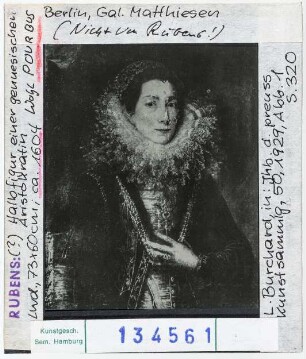 Berlin, Gal. Matthiesen
(Nicht von Rubens!)
RUBENS:(?) Halbfigur einer genuesischen
Aristokratin
Lwd, 73x60cm; ca. 1604 Wogl POURBUS
L. Burchard, in: Jhb. d. preuss.
Kunstsammlg, 50, 1929, Abb. 1
S. 320
Kunstgesch.
Sem. Hamburg
134561